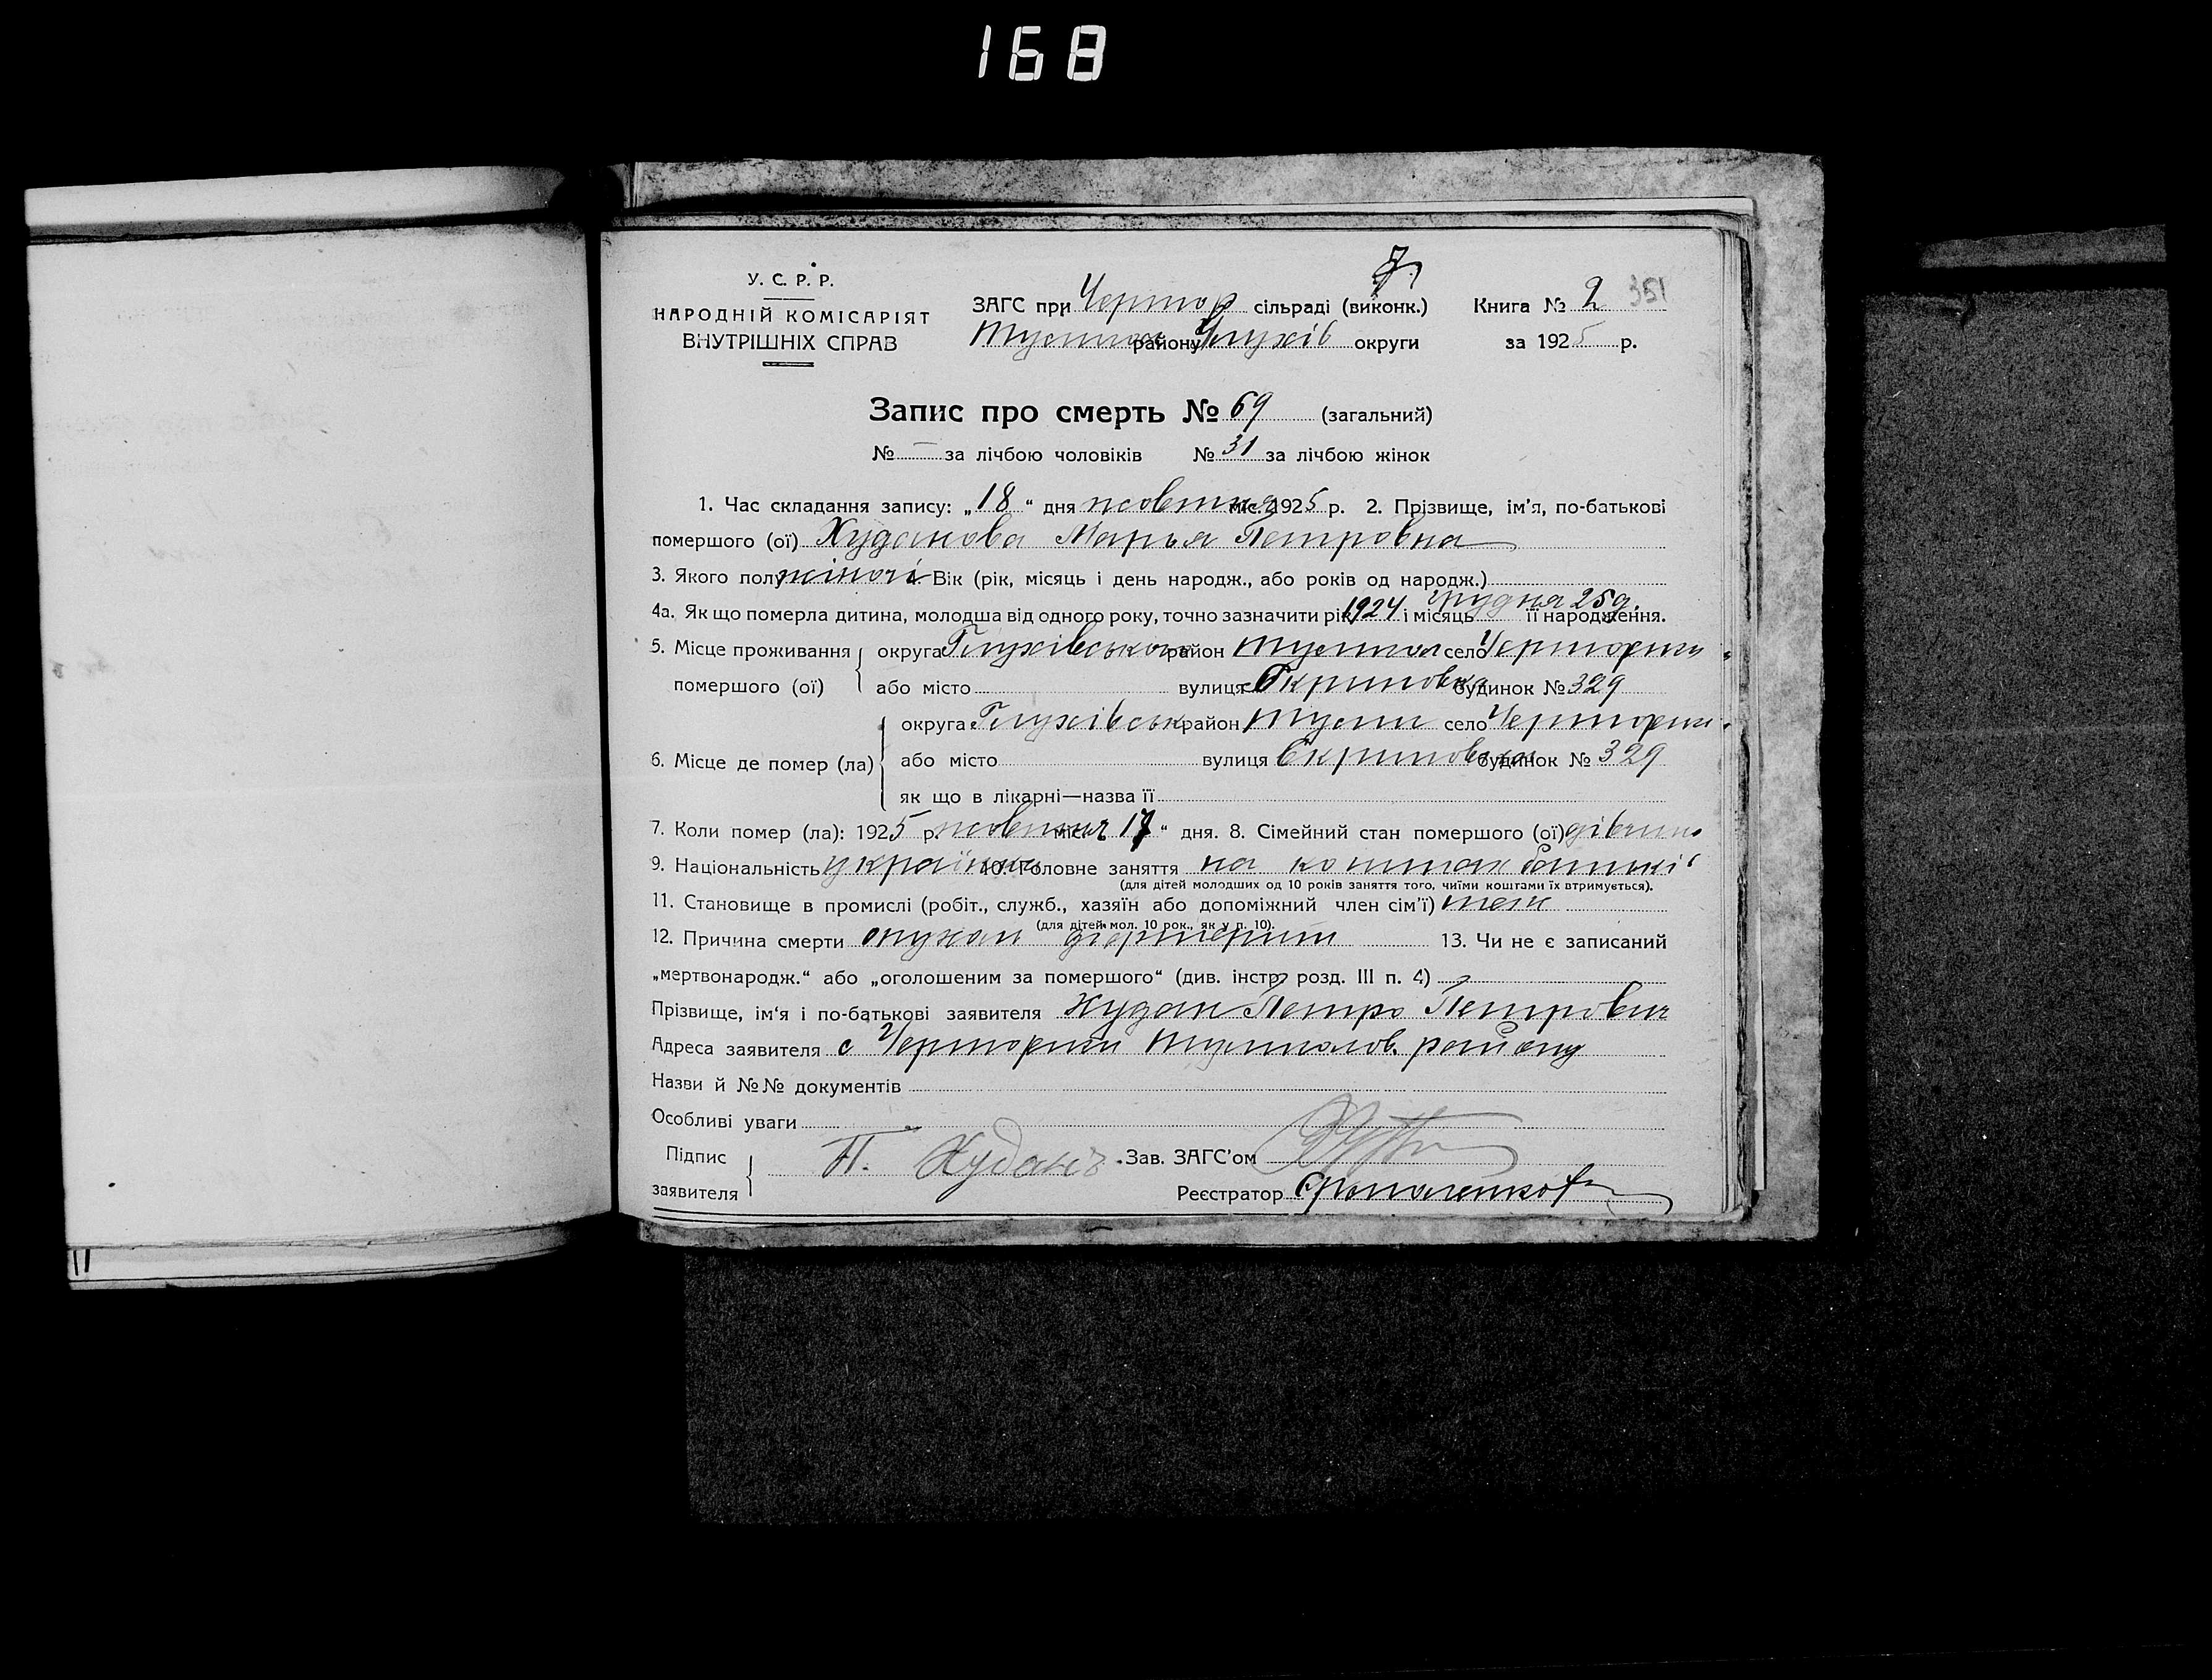 168
У. С. Р. Р.
НАРОДНІЙ КОМІСАРІЯТ
ВНУТРІШНІХ СПРАВ
ЗАГС при Чертор сільраді (виконк.)
району Глухів округи
Книга № 2 351
за 1925 р.
Запис про смерть № 69 (загальний)
№ — за лічбою чоловіків № 31 за лічбою жінок
1. Час складання запису: „18“ дня жовтня міс. 1925 р. 2. Прізвище, ім'я, по-батькові
помершого (ої) Худакова Марья Петровна
3. Якого полу жіночі 4. Вік (рік, місяць і день народж., або років од народж.)
4а. Як що померла дитина, молодша від одного року, точно зазначити рік 1924 і місяць грудня 25 д. її народження.
5. Місце проживання округа Глухівського район село Черториги
помершого (ої) або місто вулиця будинок № 329
округа Глухівськ район село Черториги
6. Місце де помер (ла) або місто вулиця будинок № 329
як що в лікарні—назва її
7. Коли помер (ла): 1925 р. жовтня міс. 17“ дня. 8. Сімейний стан помершого (ої) дівчина
9. Національність українка 10. Головне заняття на коштах батьків
(для дітей молодших од 10 років заняття того, чиїми коштами їх втримується).
11. Становище в промислі (робіт., служб., хазяїн або допоміжний член сім'ї) теж
(для дітей мол. 10 рок., як у п. 10).
12. Причина смерти 13. Чи не є записаний
„мертвонародж.“ або „оголошеним за помершого“ (див. інстр. розд. III п. 4)
Прізвище, ім'я і по-батькові заявителя Худак Петро Петрович
Адреса заявителя с Черториги району
Назви й №№ документів
Особливі уваги
Підпис
заявителя
П. Худакъ
Зав. ЗАГС'ом
Реєстратор